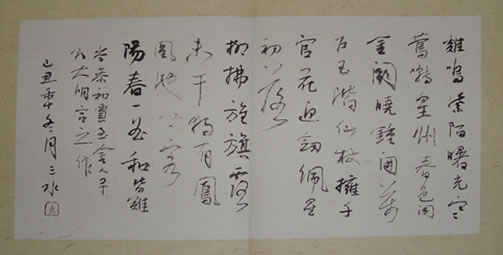 雞鳴紫陌曙光寒
鶯囀皇州春色闌
金闕曉鐘開萬
戶玉階仙杖擁千
官花迎劍佩星
初落
柳拂旌旗露
未干獨有鳳
凰池上客
陽春一曲和皆難
岑參和賈至舍人早
朝大明宫之作
己丑年冬月三水